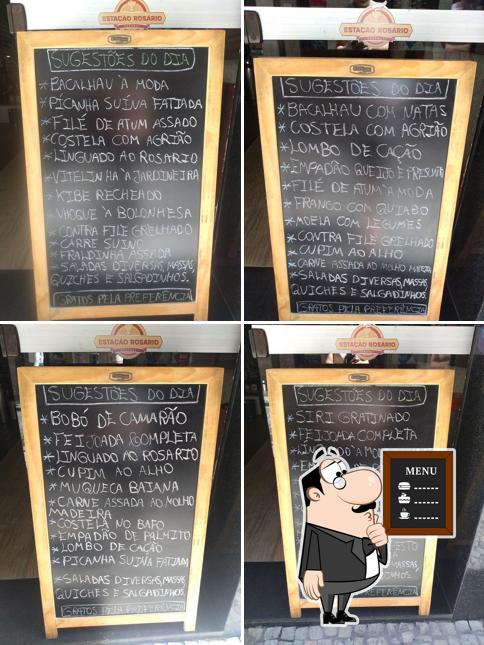 ESTAÇÃO ROSÁRIO
SUGESTÕES DO DIA
* BACALHAU À MODA
* PICANHA SUÍNA FATIADA
* FILÉ DE ATUM ASSADO
* COSTELA COM AGRIÃO
* LINGUADO AO ROSARIO
* VITELINHA À JARDINEIRA
* KIBE RECHEADO
* NHOQUE À BOLONHESA
* CONTRA FILÉ GRELHADO
* CARRE SUINO
* FRALDINHA ASSADA
* SALADAS DIVERSAS, MASSAS,
QUICHES E SALGADINHOS.
GRATOS PELA PREFERÊNCIA
ESTAÇÃO ROSÁRIO
SUGESTÕES DO DIA
* BACALHAU COM NATAS
* COSTELA COM AGRIÃO
* LOMBO DE CAÇÃO
* EMPADÃO QUEIJO E PRESUNTO
* FILÉ DE ATUM À MODA
* FRANGO COM QUIABO
* MOELA COM LEGUMES
* CONTRA FILÉ GRELHADO
* CUPIM AO ALHO
* CARNE ASSADA AO MOLHO MADEIRA
* SALADAS DIVERSAS, MASSAS
QUICHES E SALGADINHOS.
GRATOS PELA PREFERÊNCIA
ESTAÇÃO ROSÁRIO
SUGESTÕES DO DIA
* BOBÓ DE CAMARÃO
* FEIJOADA COMPLETA
* LINGUADO AO ROSARIO
* CUPIM AO ALHO
* MUQUECA BAIANA
* CARNE ASSADA AO MOLHO
MADEIRA
* COSTELA NO BAFO
* EMPADÃO DE PALMITO
* LOMBO DE CAÇÃO
* PICANHA SUÍNA FATIADA
* SALADAS DIVERSAS, MASSAS
QUICHES E SALGADINHOS.
GRATOS PELA PREFERÊNCIA
ESTAÇÃO ROSÁRIO
SUGESTÕES DO DIA
* SIRI GRATINADO
* FEIJOADA COMPLETA
MENU